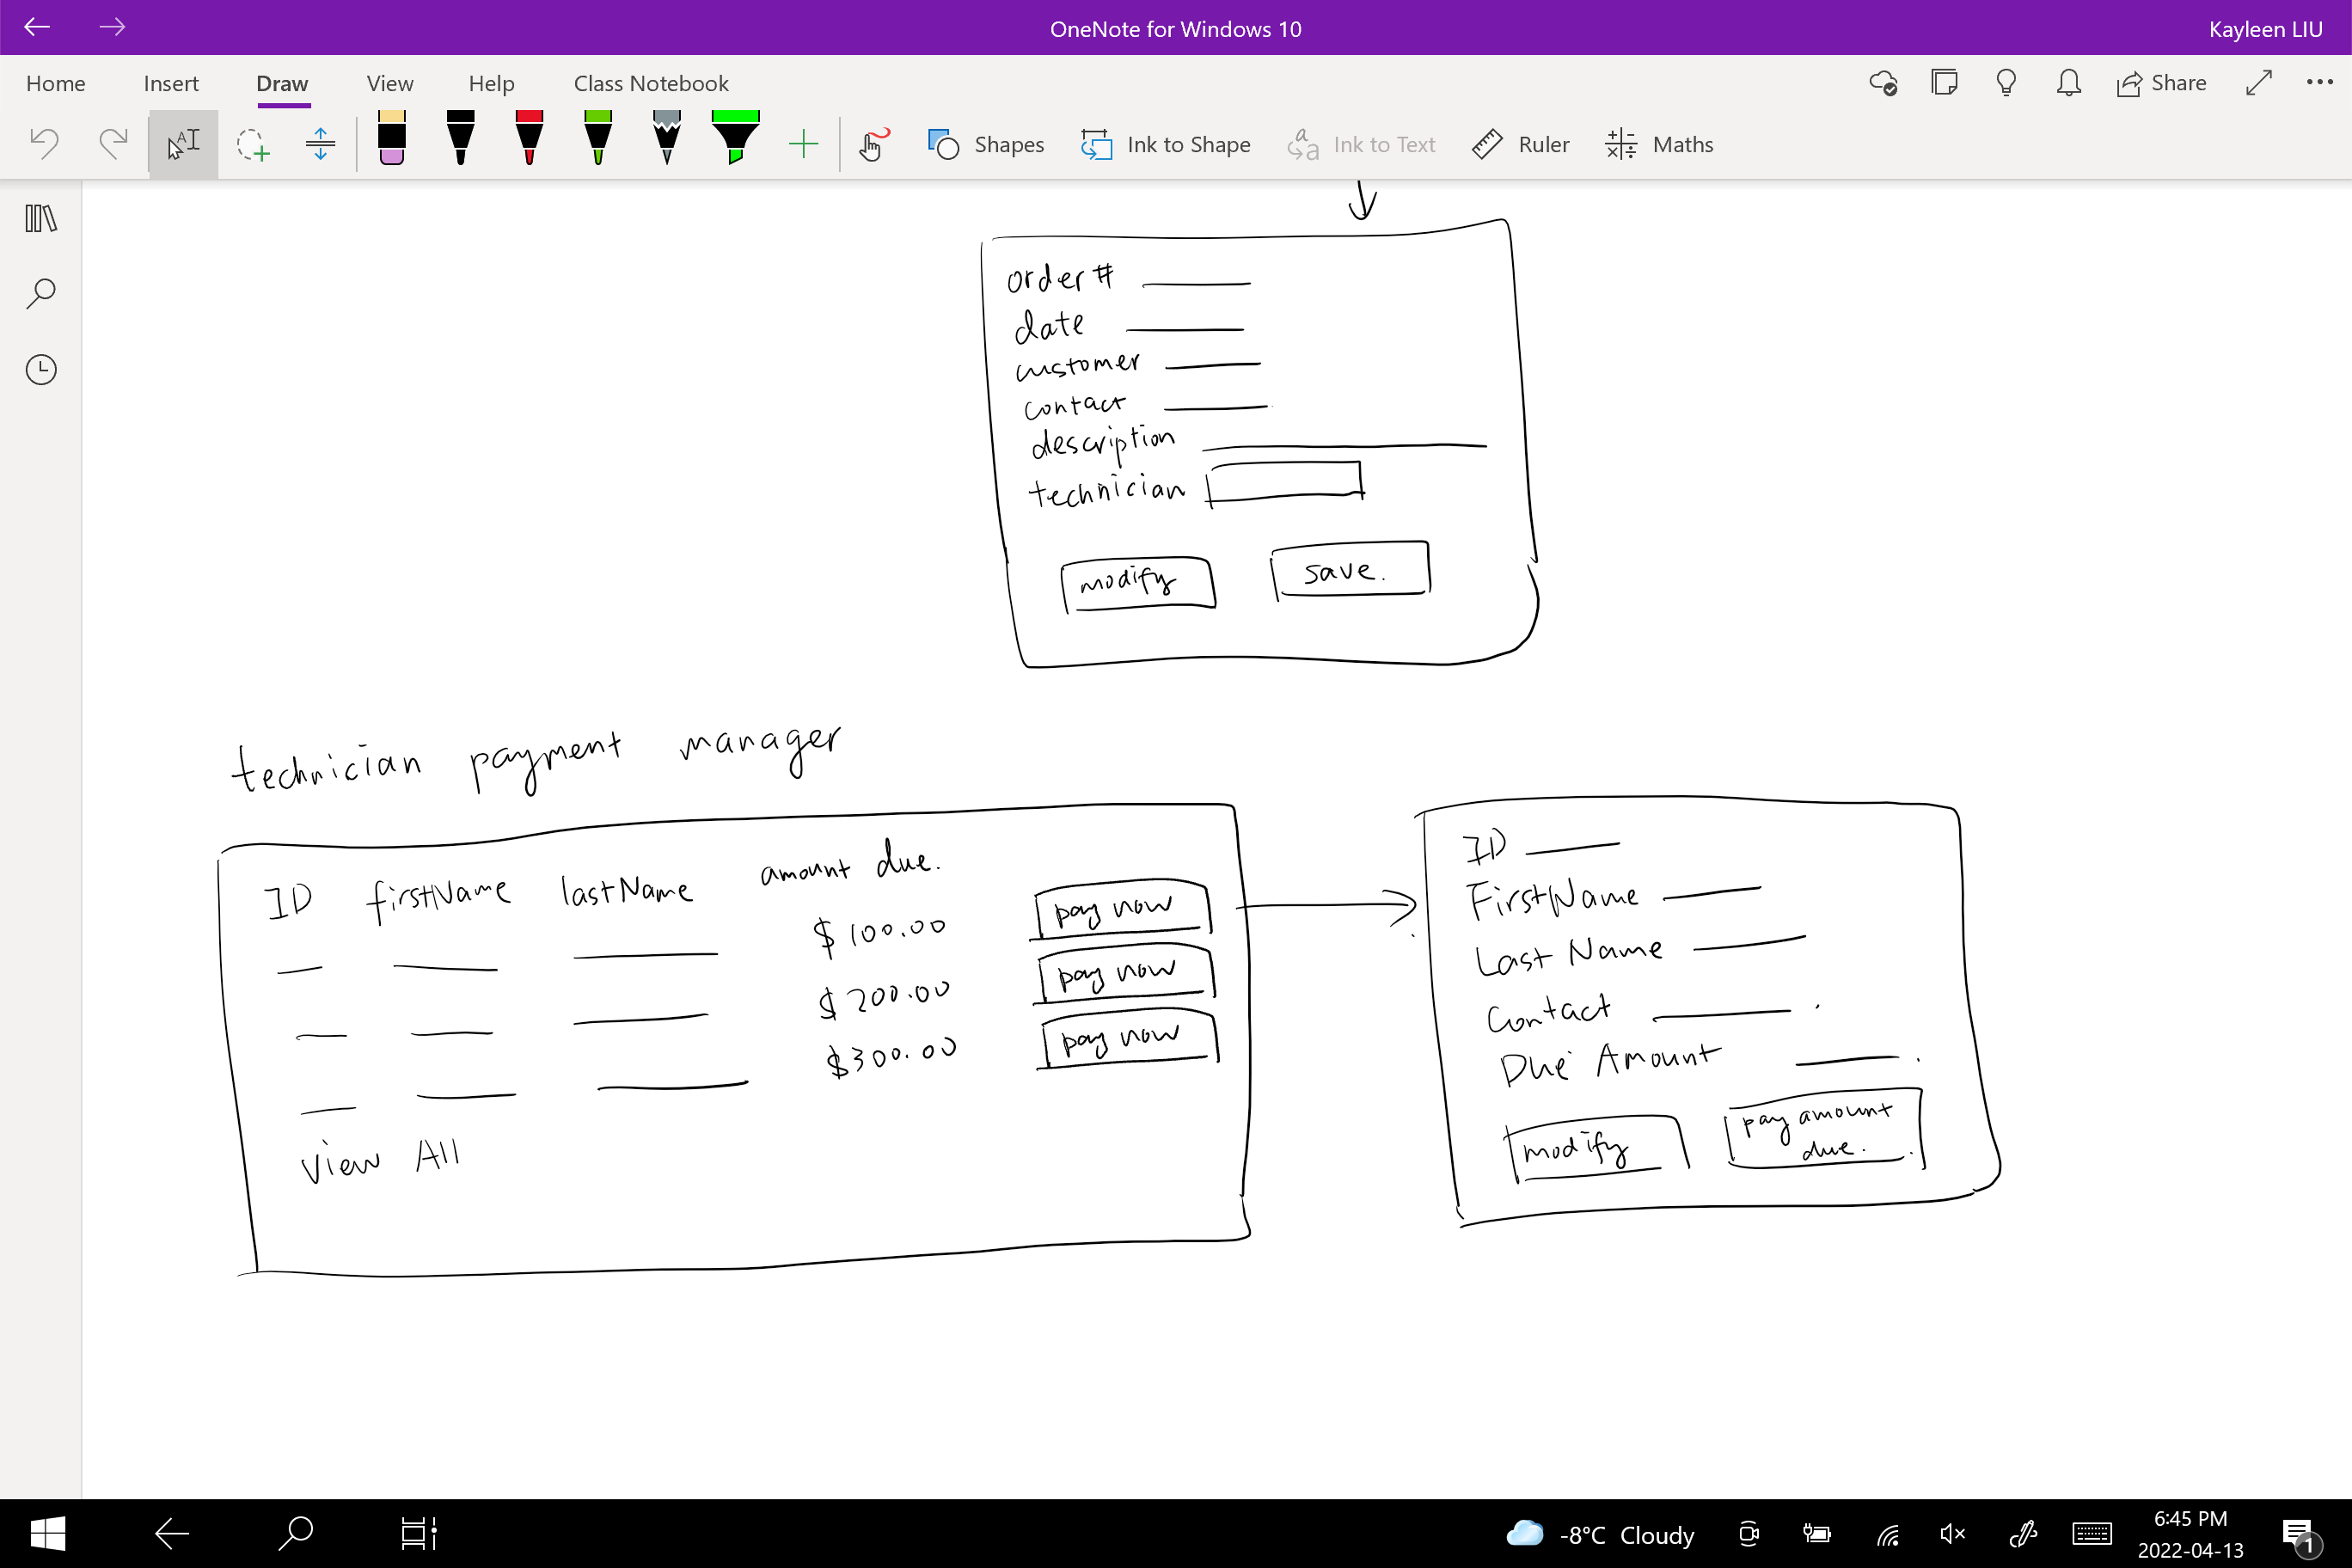 OneNote for Windows 10
Kayleen LIU
Home Insert Draw View Help Class Notebook
Share
Shapes Ink to Shape Ink to Text Ruler Maths
order #
date
customer
contact
description
technician
modify save.
technician payment manager
ID firstName lastName amount due.
$100.00 pay now
$200.00 pay now
$300.00 pay now
View All
ID
FirstName
Last Name
Contact
Due Amount
modify
pay amount
due.
-8°C Cloudy
6:45 PM
2022-04-13
1